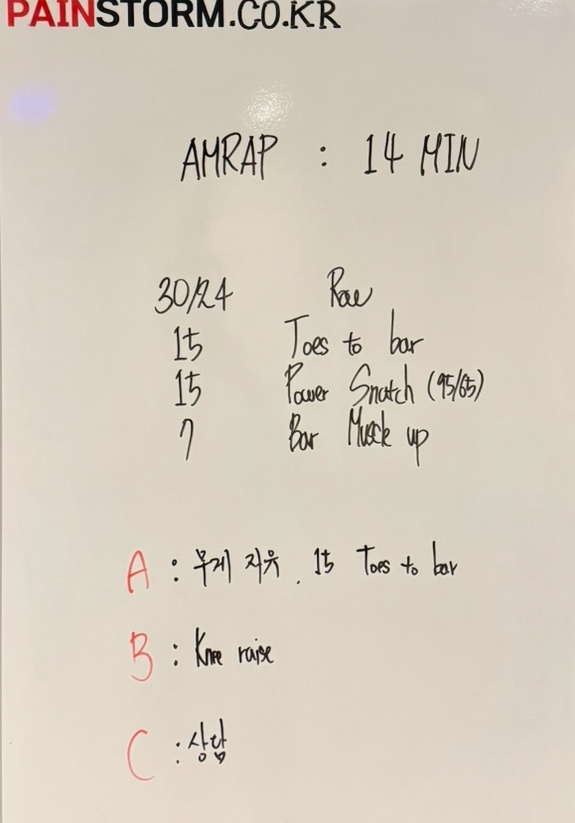 PAINSTORM.CO.KR
AMRAP : 14 MIN
30/24 Row
15 Toes to bar
15 Power Snatch (95/65)
7 Bar Muscle up
A : 무게 자유. 15 Toes to bar
B : Knee raise
C : 상담